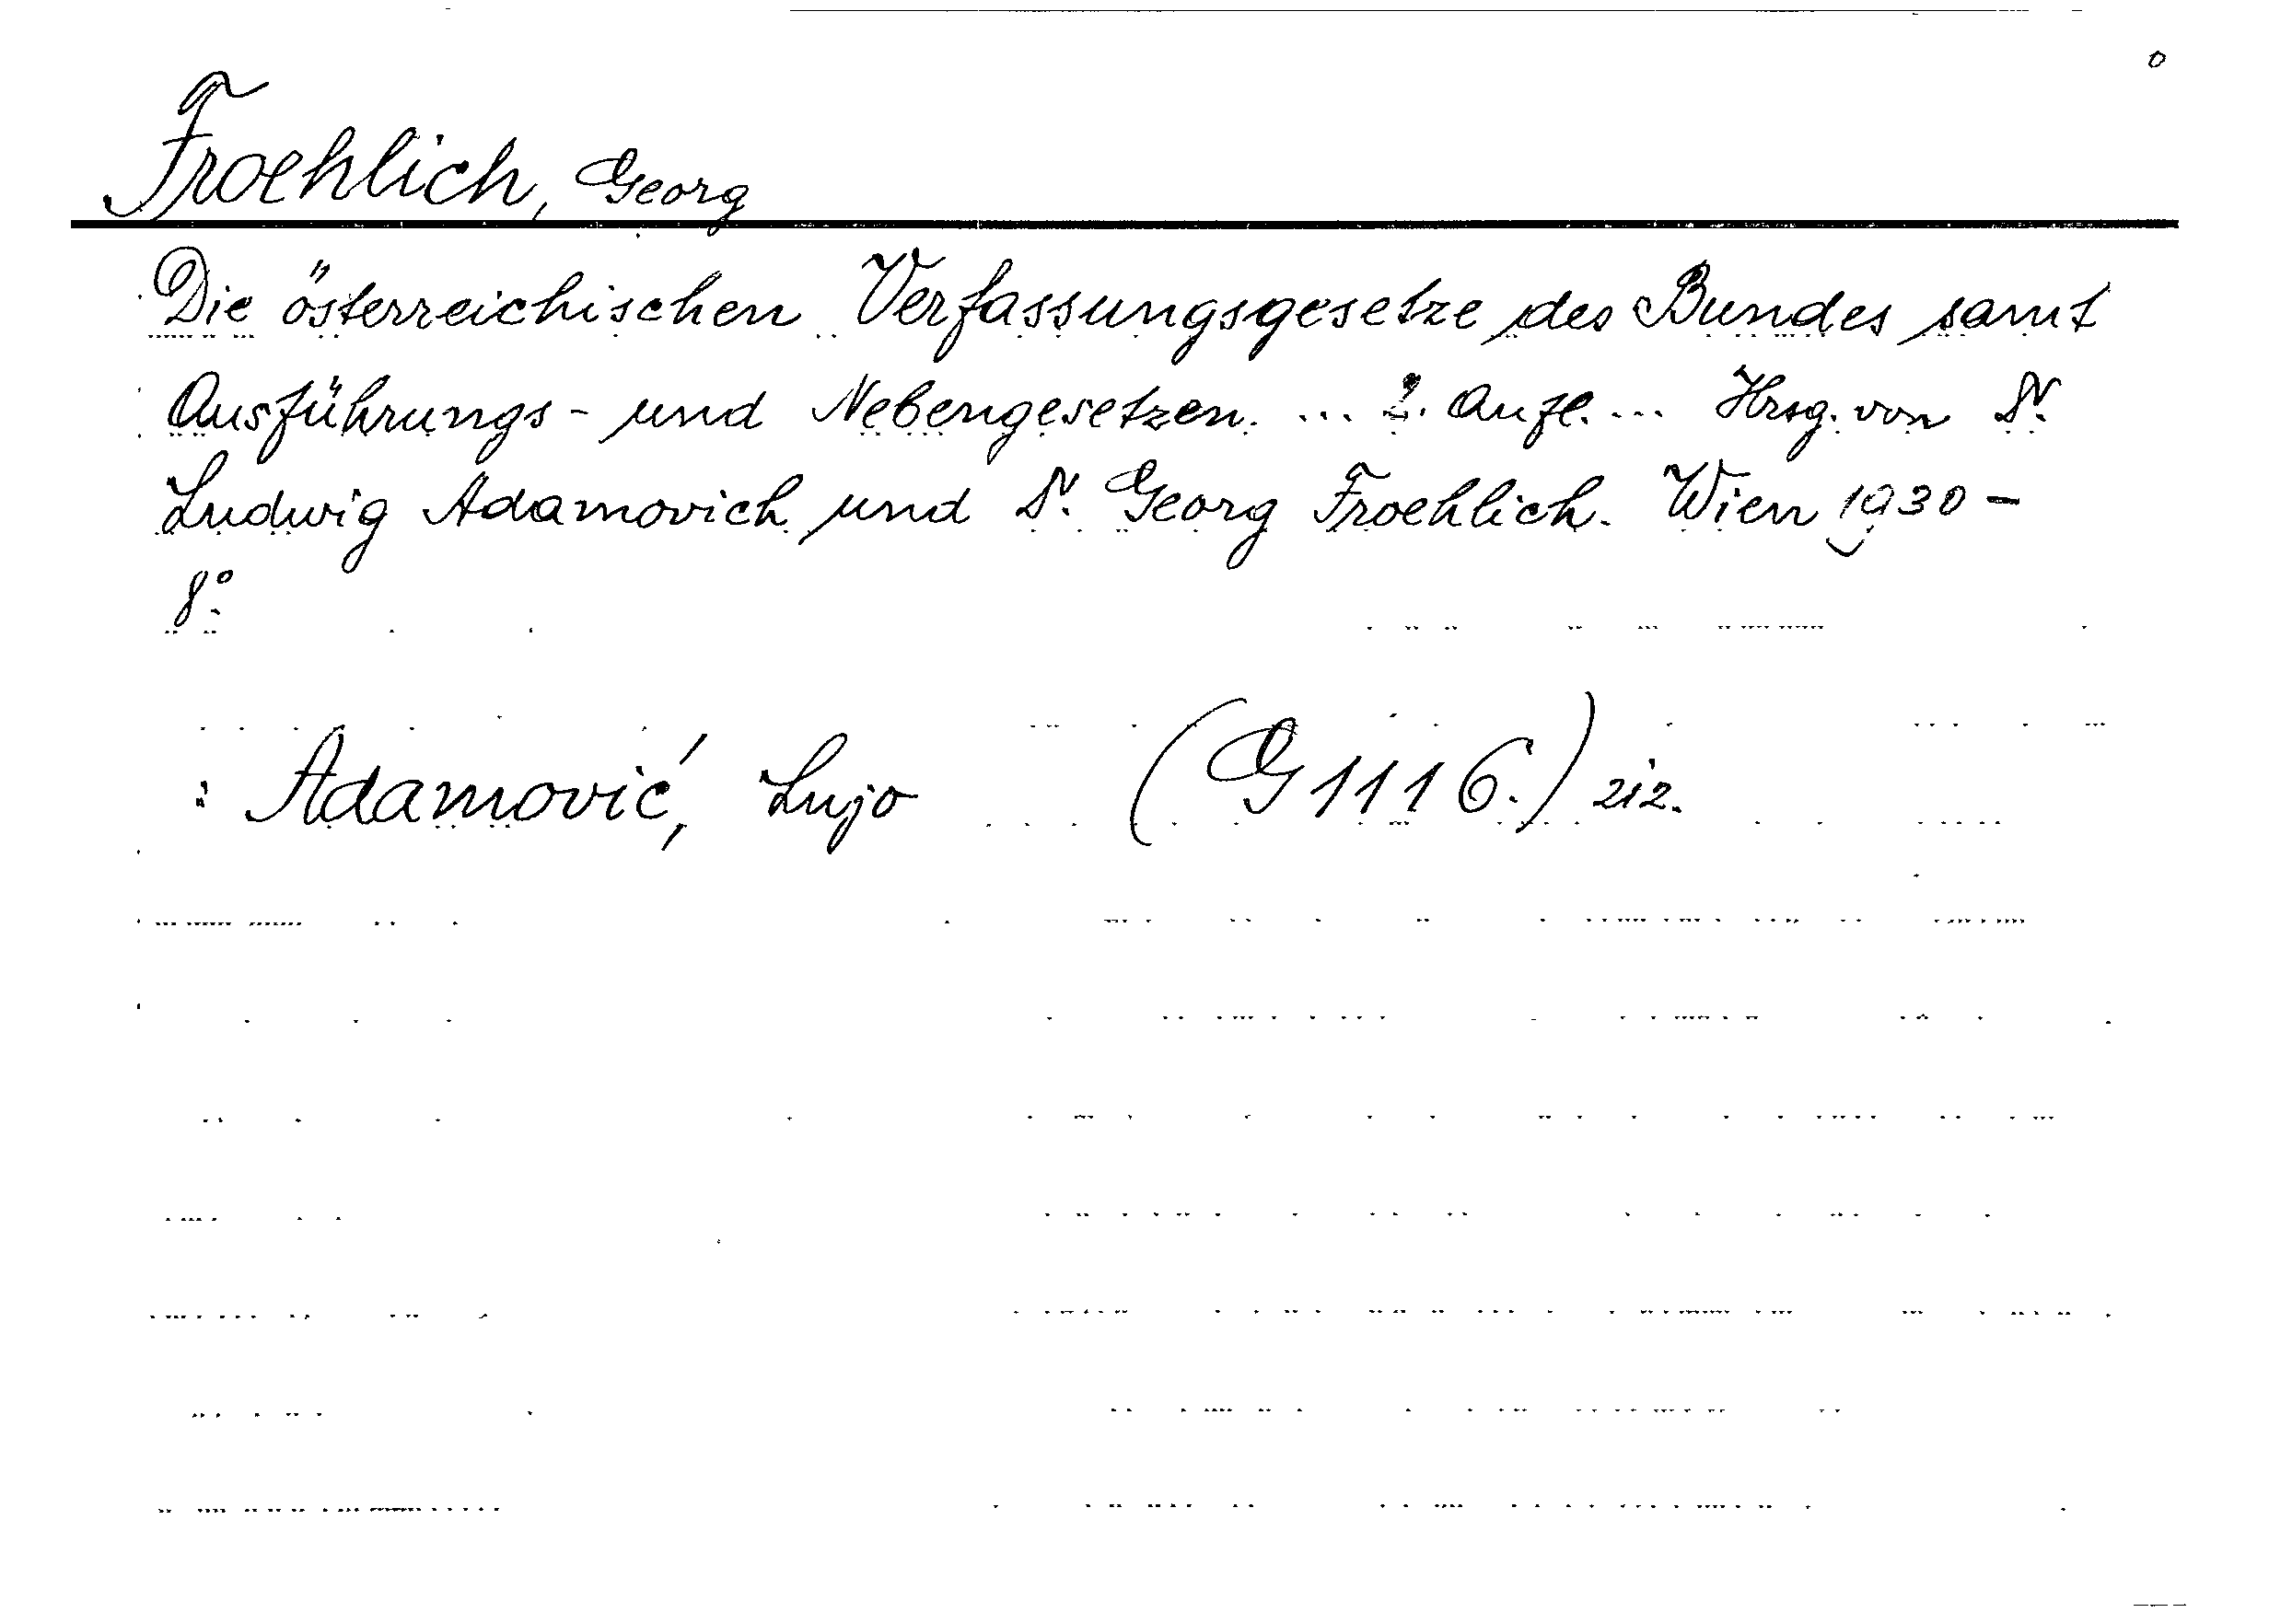 Froehlich, Georg
Die österreichischen Verfassungsgesetze des Bundes samt
Ausführungs- und Nebengesetzen. ... 2. Aufl. ... Hrsg. von Dr.
Ludwig Adamovich und Dr. Georg Froehlich. Wien 1930 -
8°.
: Adamović, Lujo (G 1116.)